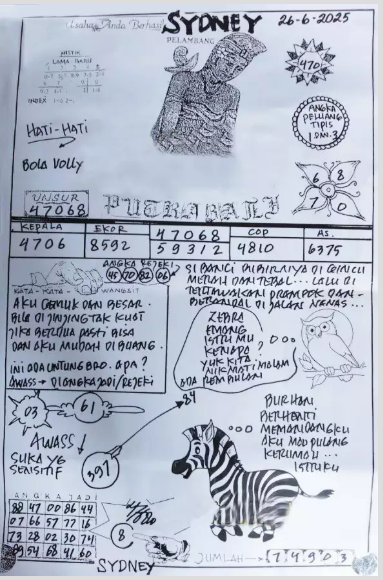 Usaha Anda Berhasil
SYDNEY
26-6-2025
PELAMBANG
470
HATI-HATI
BOLA VOLLY
ANGKA
PELUANG
TIPIS
1 DAN 3
6 8
7 0
UNSUR
47068
PUTRA BALI
KEPALA EKOR 47068 COP AS.
4706 8592 59312 4810 6375
ANGKA REJEKI
45 70 82 06
KATA-KATA WANGSIT
AKU GEMUK DAN BESAR.
BILA DI JINJING TAK KUAT
JIKA BERDUA PASTI BISA
DAN AKU MUDAH DI BUANG.
INI ADA UNTUNG BRO. APA?
AWASS → DI ANGKA JADI/REJEKI
SI BANCI DI BIRNIYA DI
MERAH DAN TEBAL... LALU DI
DI JALAN NANAS...
ZEBRA
EMANG
ISTRI MU
KENAPA
YUK KITA
NIKMATI MALAM
ADA REMBULAN
03
61
84
AWASS
SUKA YG
SENSITIF
397
BURHAN
BERHENTI
MEMANDANGKU
AKU MAU PULANG
KERUMAH...
ISTRIKU
ANGKA JADI
88 47 00 86 44
07 66 57 77 16
73 28 02 30 74
89 54 68 41 60
8
SYDNEY
JUMLAH
7 4 9 0 3